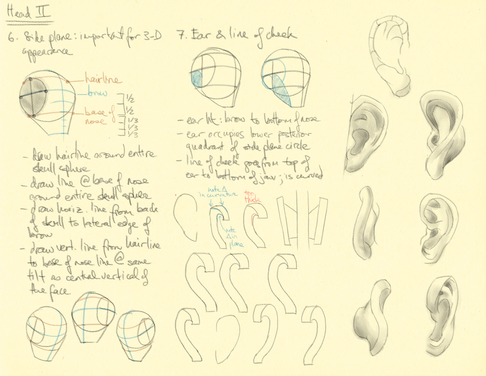 Head II
6. Side plane: important for 3-D
appearance
hairline
brow
base of
nose
1/2
1/2
1/3
1/3
1/3
- draw hairline around entire
skull sphere
- draw line @ base of nose
around entire skull sphere
- draw horiz. line from back
of skull to lateral edge of
brow
- draw vert. line from hairline
to base of nose line @ same
tilt as central vertical of
the face
7. Ear & line of cheek
- ear ht: brow to bottom of nose
- ear occupies lower posterior
quadrant of side plane circle
- line of cheek goes from top of
ear to bottom of jaw; is curved
note Δ
in
too
thick
note Δ in
plane